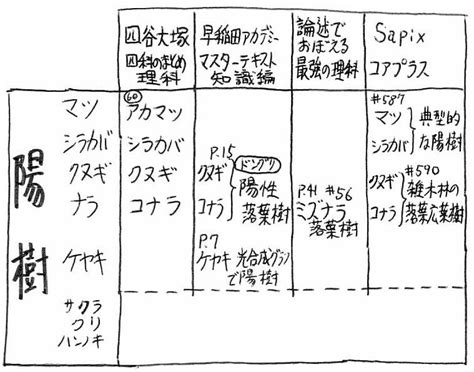 四谷大塚
四科のまとめ
理科
早稲田アカデミー
マスターテキスト
知識編
論述で
おぼえる
最強の理科
Sapix
コアプラス
陽樹
マツ
シラカバ
クヌギ
ナラ
ケヤキ
サクラ
クリ
ハンノキ
60
アカマツ
シラカバ
クヌギ
コナラ
P.15
クヌギ
コナラ
ドングリ
陽性
落葉樹
P.7
ケヤキ 光合成グラフ
で陽樹
P.41 #56
ミズナラ
落葉樹
#587
マツ
シラカバ
典型的
な陽樹
#590
クヌギ
コナラ
雑木林の
落葉広葉樹